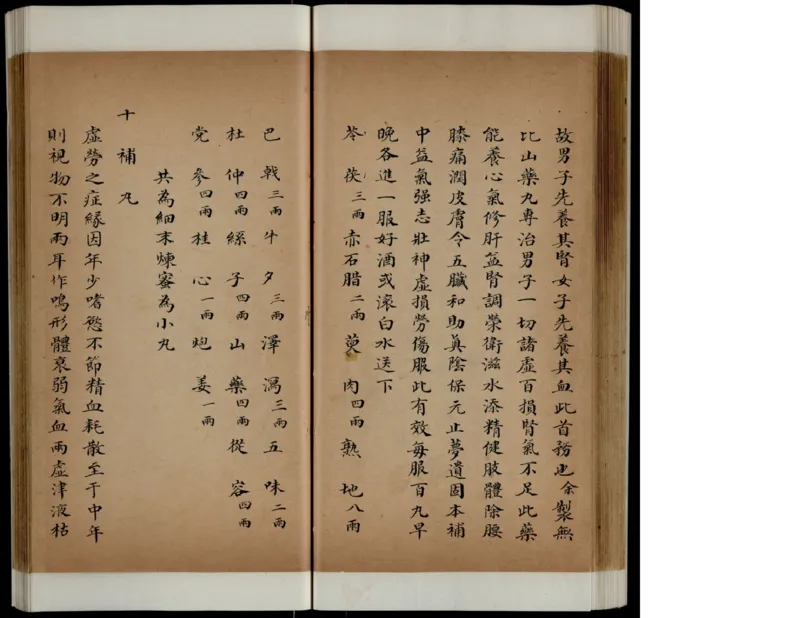 故男子先養其腎女子先養其血此首務也余製無
比山藥丸專治男子一切諸虛百損腎氣不足此藥
能養心氣修肝益腎調榮衛滋水添精健肢體除腰
膝痛潤皮膚令五臟和助真陰保元止夢遺固本補
中益氣强志壯神虛損勞傷服此有效每服百丸早
晚各進一服好酒或滚白水送下
苓茯三兩赤石腊二兩萸肉四兩熟地八兩
巴戟三兩牛夕三兩澤瀉三兩五味二兩
杜仲四兩絲子四兩山藥四兩從容四兩
党參四兩桂心一兩炮姜一兩
共為細末煉蜜為小丸
十補丸
虛勞之症緣因年少嗜慾不節精血耗散至于中年
則視物不明兩耳作鳴形體衰弱氣血兩虛津液枯